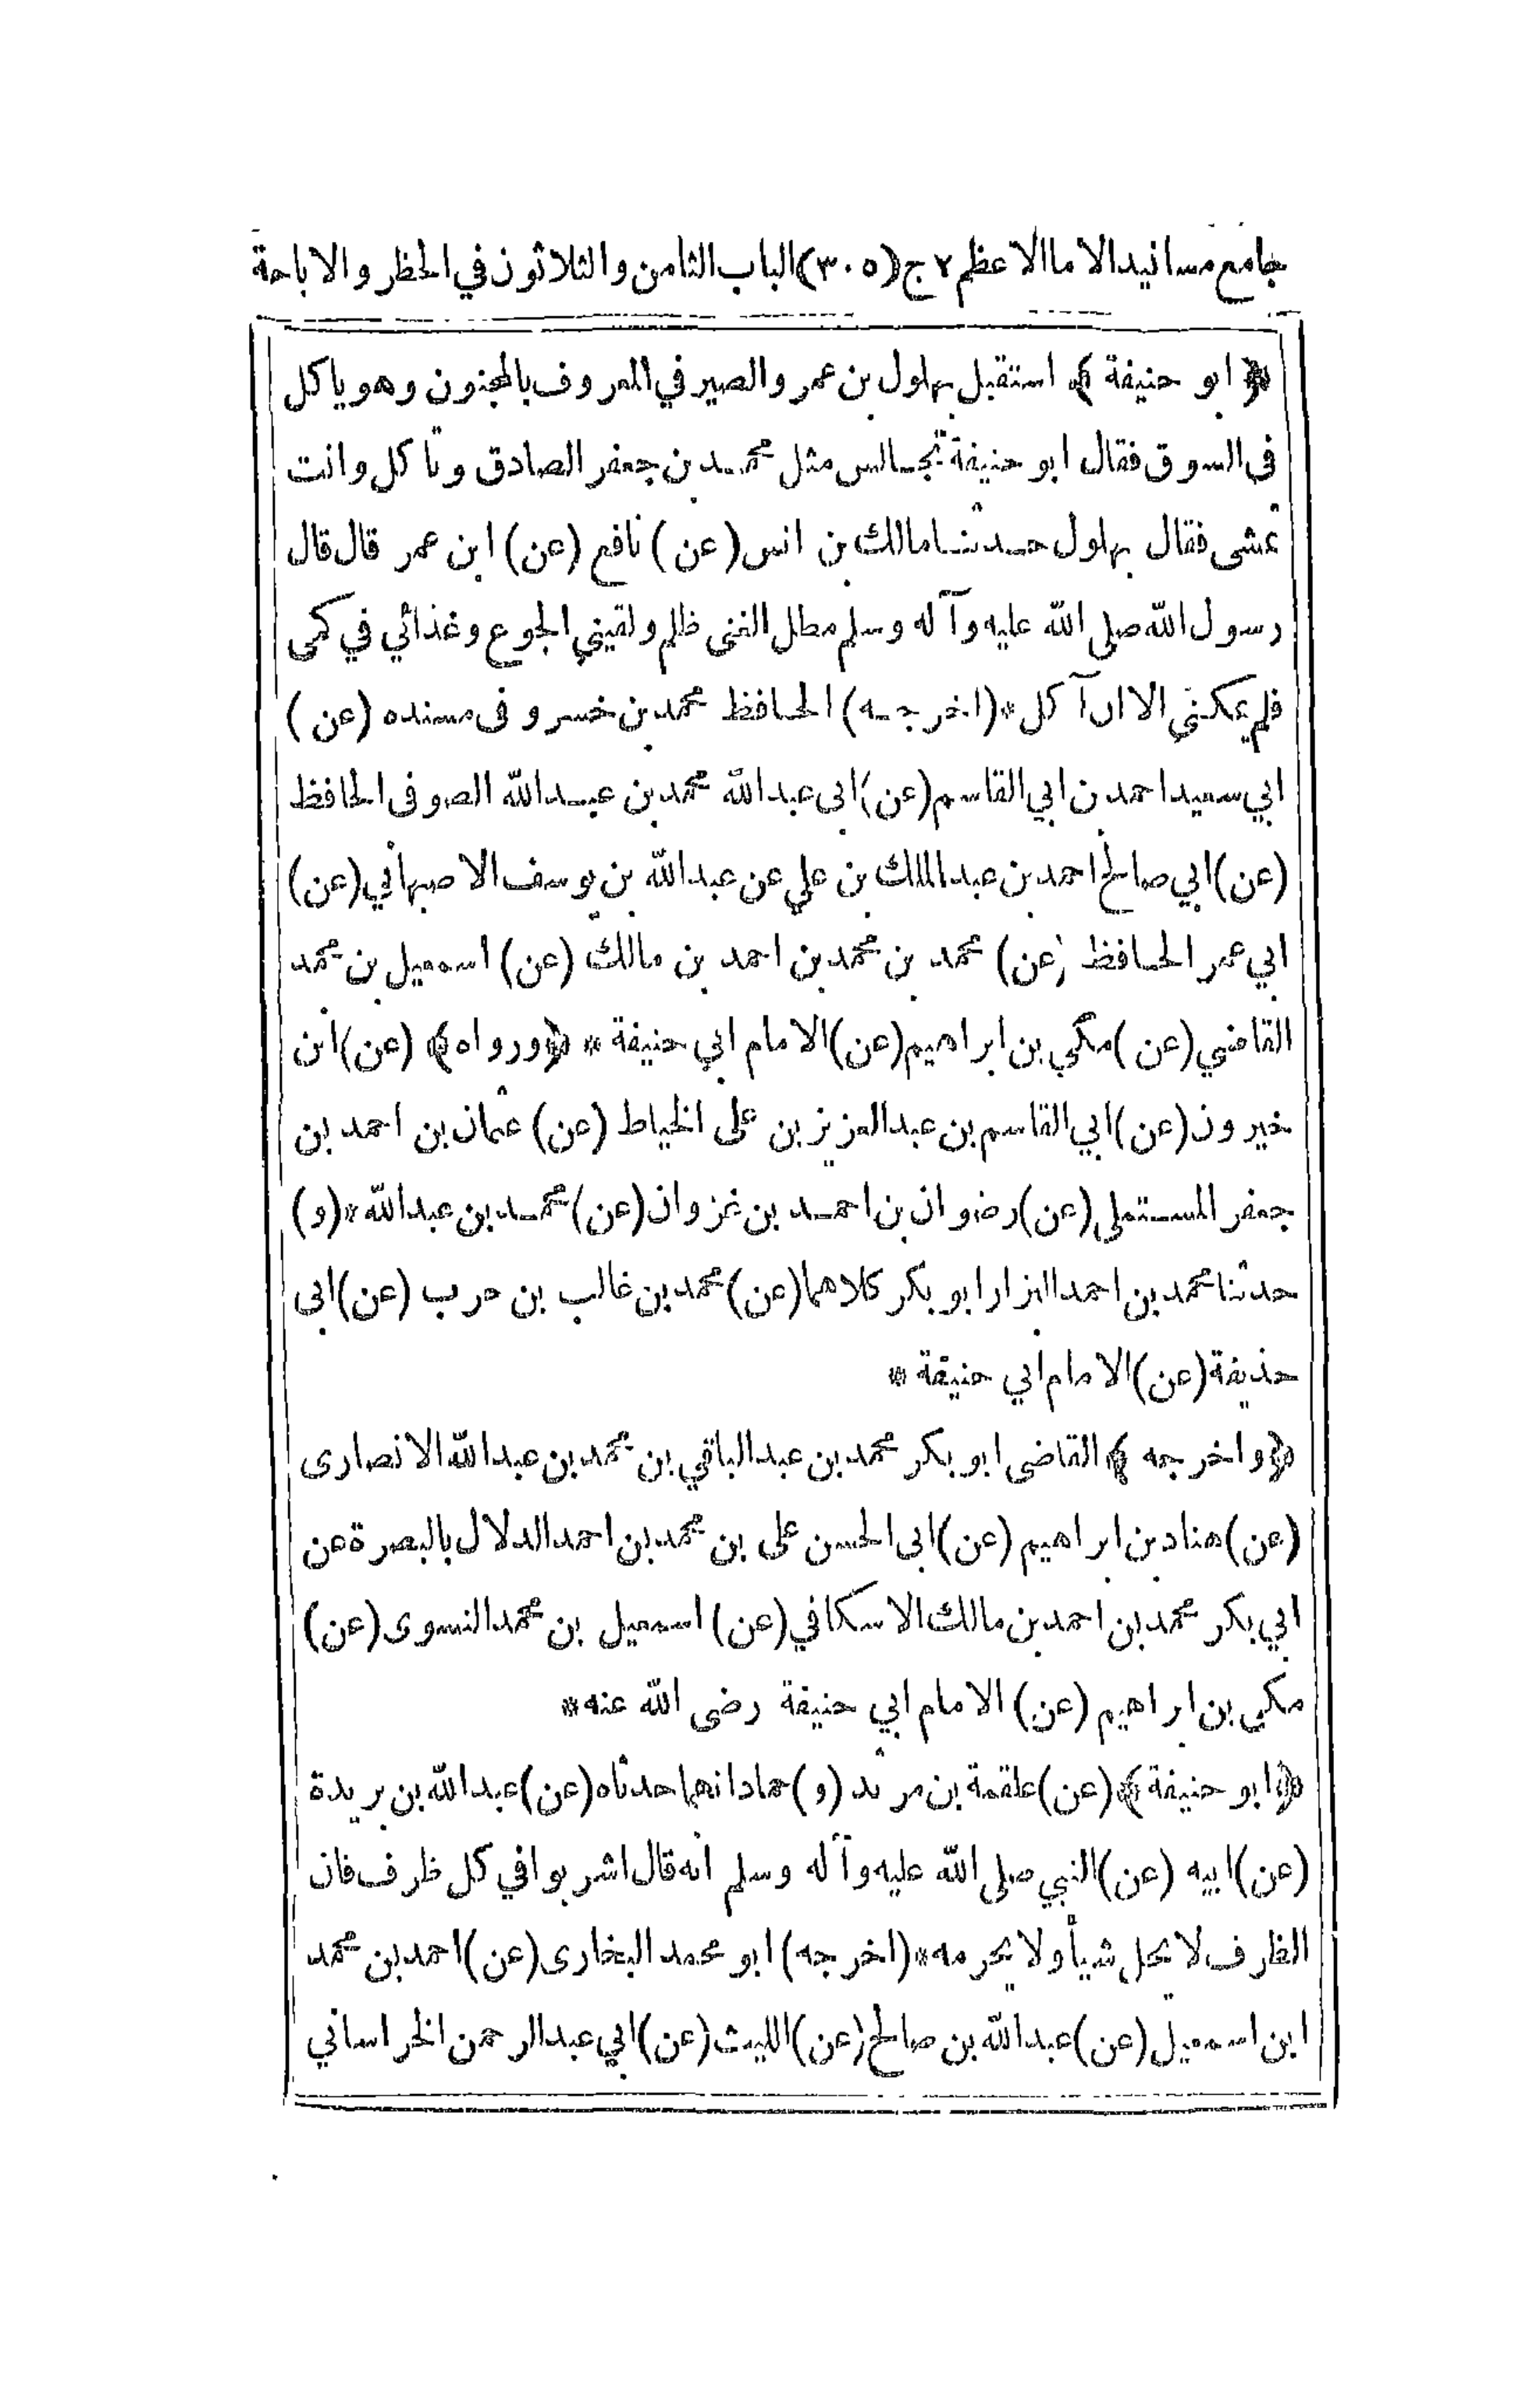 جامع مسانيد الاما الاعظم ٢ ج (٣٠٥) الباب الثامن والثلاثون في الحظر والاباحة
﴿ ابو حنيفة ﴾ استقبل بهلول بن عمر والصير في المعروف بالمجنون وهو ياكل
فى السوق فقال ابو حنيفة تجالس مثل محمد بن جعفر الصادق وتاكل وانت
تمشى فقال بهلول حدثنا مالك بن انس (عن) نافع (عن) ابن عمر قال قال
رسول الله صلى الله عليه وآله وسلم مطل الغنى ظلم ولقيني الجوع وغذائي في كمى
فلم يمكني الا ان آكل * (اخرجه) الحافظ محمد بن خسرو فى مسنده (عن)
ابي سعيد احمد بن ابي القاسم (عن) ابى عبد الله محمد بن عبد الله الصوفى الحافظ
(عن) ابي صالح احمد بن عبد الملك بن علي عن عبد الله بن يوسف الاصبهاني (عن)
ابي عمر الحافظ (عن) محمد بن محمد بن احمد بن مالك (عن) اسمعيل بن محمد
القاضي (عن) مكي بن ابراهيم (عن) الامام ابي حنيفة * ﴿ ورواه ﴾ (عن) ابن
خيرون (عن) ابي القاسم بن عبد العزيز بن على الخياط (عن) عثمان بن احمد بن
جعفر المستملى (عن) رضوان بن احمد بن غزوان (عن) محمد بن عبد الله * (و)
حدثنا محمد بن احمد البزار ابو بكر كلاهما (عن) محمد بن غالب بن حرب (عن) ابى
حذيفة (عن) الامام ابي حنيفة *
﴿ واخرجه ﴾ القاضى ابو بكر محمد بن عبد الباقي بن محمد بن عبد الله الانصارى
(عن) هناد بن ابراهيم (عن) ابى الحسن على بن محمد بن احمد الدلال بالبصرة عن
ابي بكر محمد بن احمد بن مالك الاسكافي (عن) اسمعيل بن محمد النسوى (عن)
مكي بن ابراهيم (عن) الامام ابي حنيفة رضى الله عنه *
﴿ ابو حنيفة ﴾ (عن) علقمة بن مرثد (و) حماد انهما حدثاه (عن) عبد الله بن بريدة
(عن) ابيه (عن) النبي صلى الله عليه وآله وسلم انه قال اشربوا في كل ظرف فان
الظرف لا يحل شيأ ولا يحرمه * (اخرجه) ابو محمد البخارى (عن) احمد بن محمد
ابن اسمعيل (عن) عبد الله بن صالح (عن) الليث (عن) ابي عبد الرحمن الخراساني